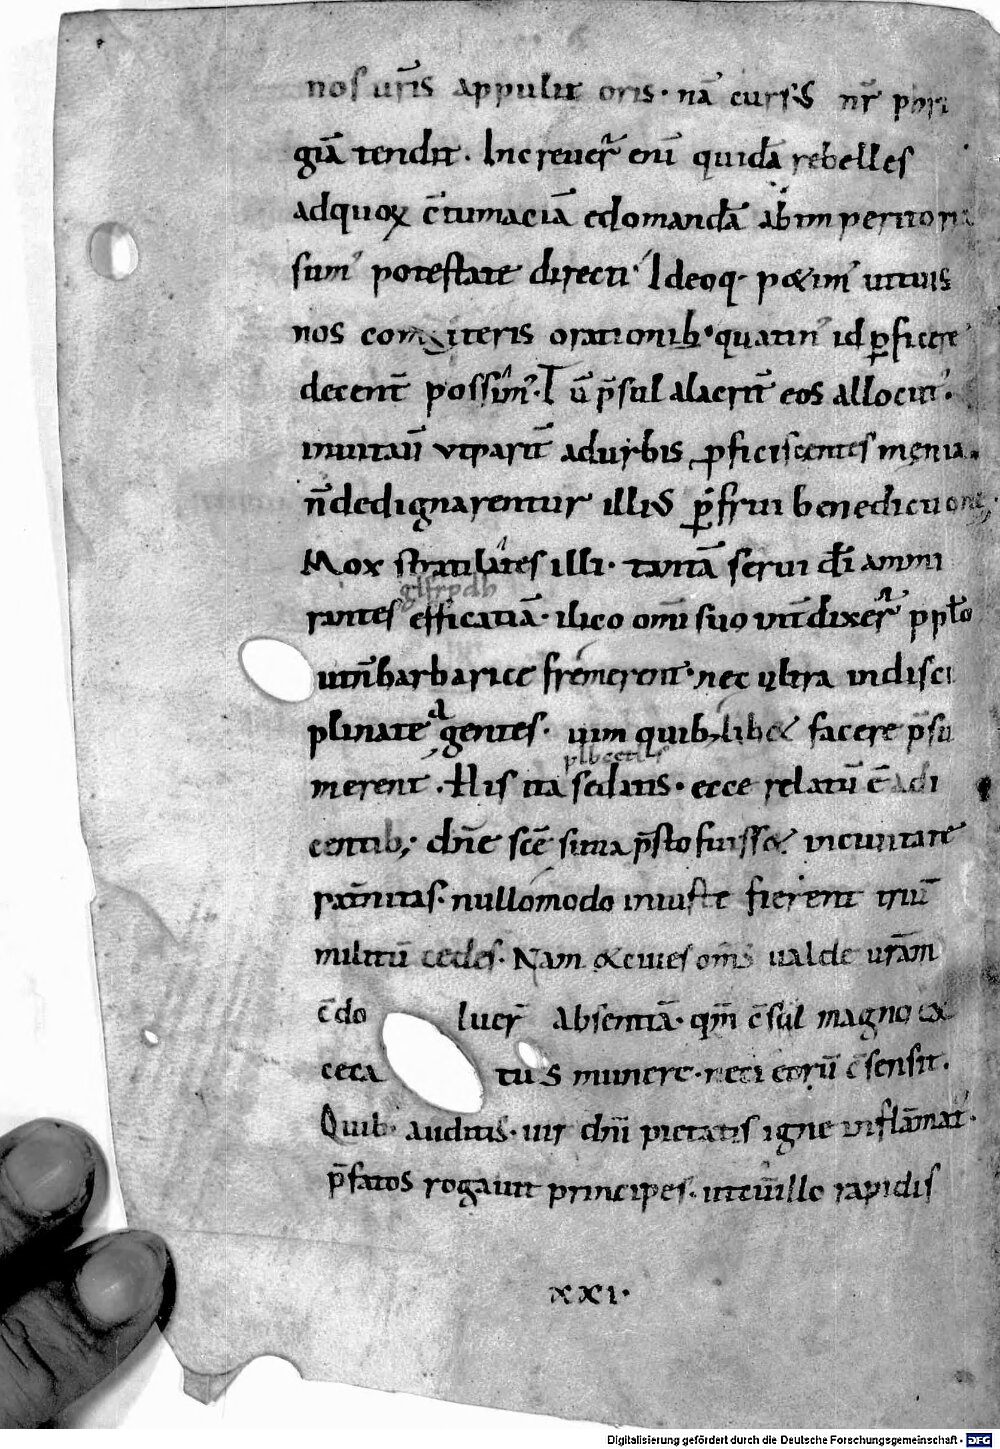 nos urı̄s appulit oris · nā cursus nr̄ phri
giā tendit . Increuer̄ eni quidā rebelles
ad quoꝝ c̄tumaciā edomandā ab imperitoria
sum' potestate directi · Ideoq· poscim' ut tuis
nos comiteris orationib; · quatin' id ꝑficere
decent̄ possim' · Tū p̄sul alacrit̄ eos allocut' .
inuitauı̄ ut parit̄ ad urbis ꝓficiscentes męnia .
n̄ dedignarentur illius ꝑfrui benedictione ;
Mox stratilates illi · tantā serui dī ammi
glfrpdb
rantes efficatiā · ilico om̄i suo int̄dixer̄ pplo
ut n̄ barbarice fremerent · nec ultra indisci
plinate gentes · uim quib; lib& facere p̄su
plbcctls
merent . His ita sedatis · ecce relatū ē adi
centib; · dn̄e sc̄e si tua p̄sto fuiss& in ciuitate
pat̄nitas · nullomodo iniuste fierent triū
militū cedes · Nam & ciues om̄s ualde ur̄am
c̄doluer̄ absentiā · qm̄ c̄sul magno ex
cecatus munere · neci eorū c̄sensit .
Quib· auditis · uir dn̄i pietatis igne inflāmat' ·
p̄fatos rogauit principes · ut cū illo rapidis
xxi ·
Digitalisierung gefördert durch die Deutsche Forschungsgemeinschaft - DFG